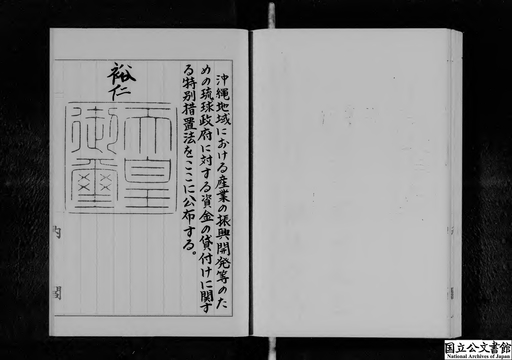 沖縄地域における産業の振興開発等のた
めの琉球政府に対する資金の貸付けに関す
る特別措置法をここに公布する。
裕仁
天皇
御璽
内閣
国立公文書館
National Archives of Japan